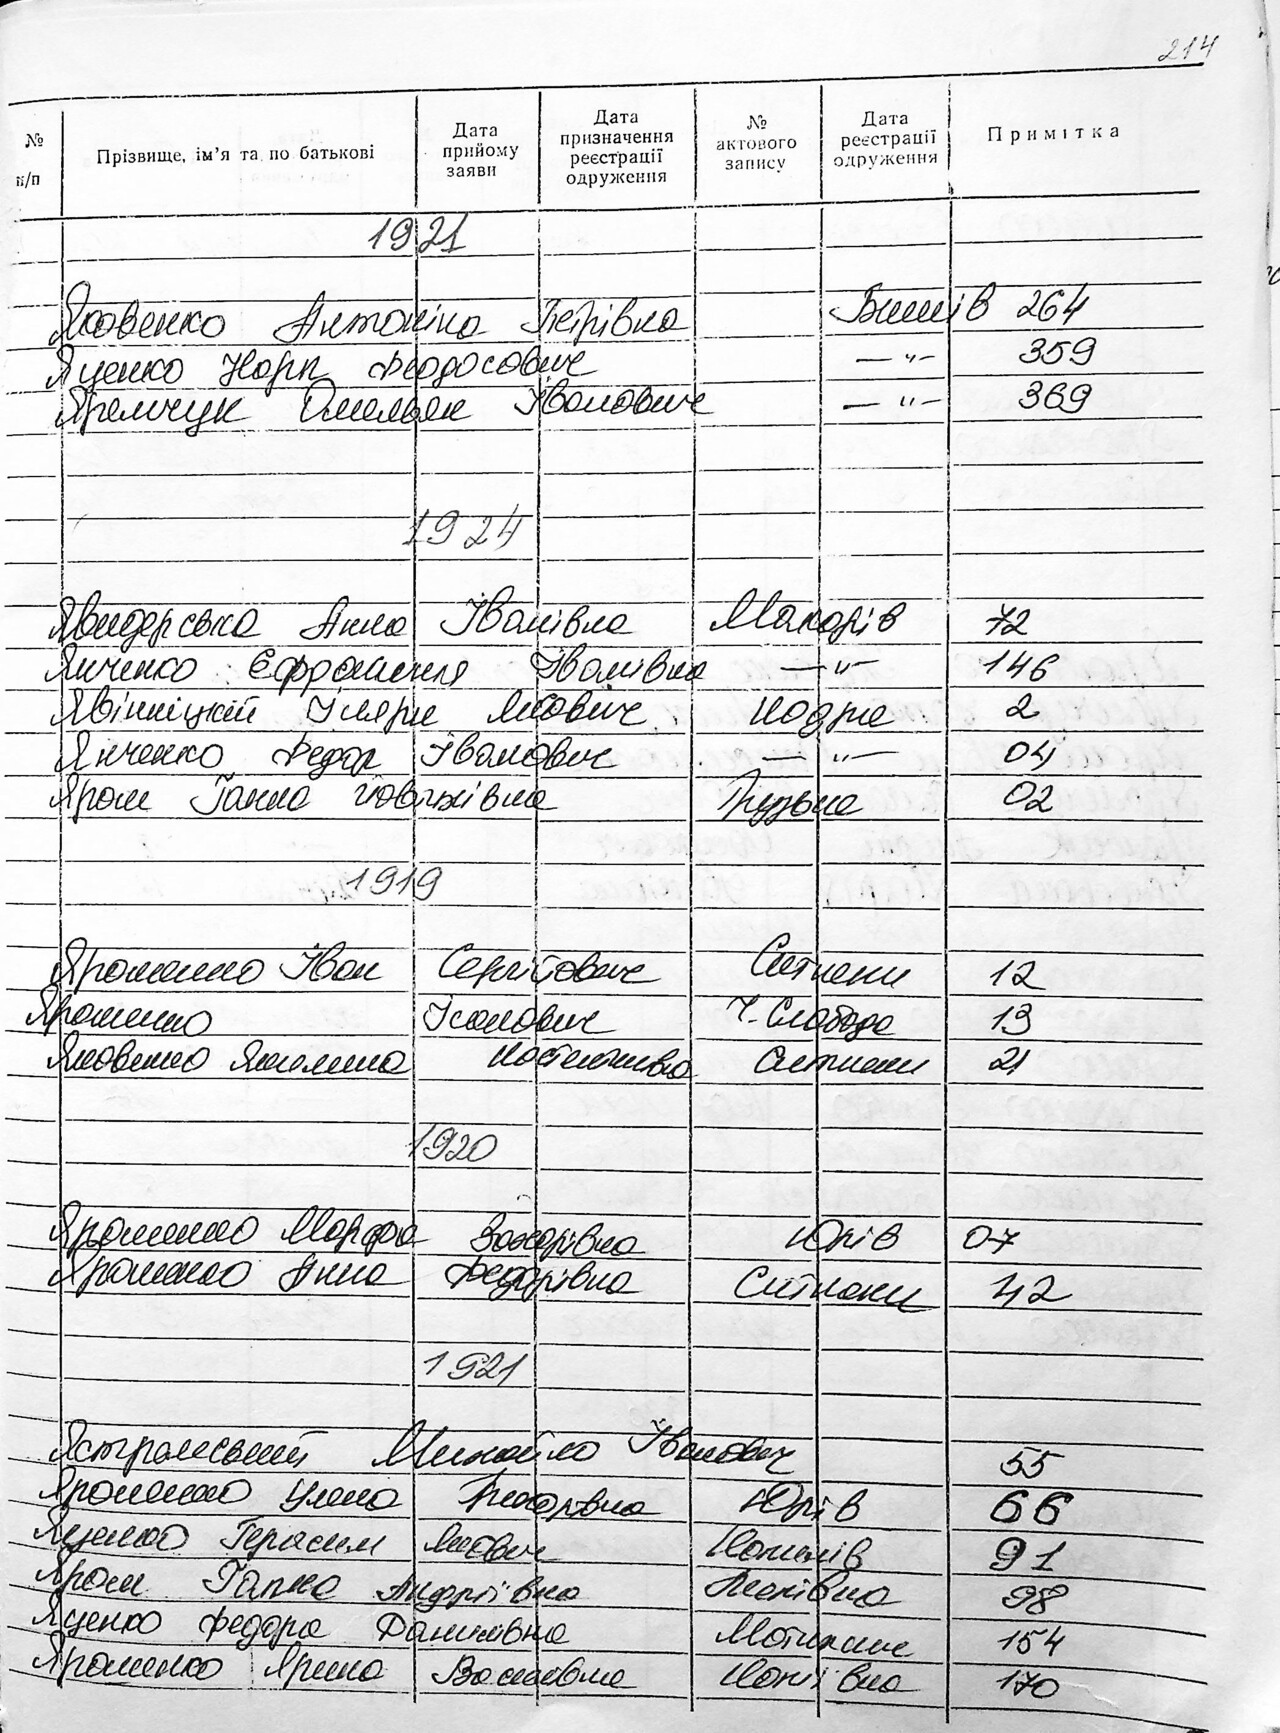 214
№ п/п Прізвище, ім'я та по батькові Дата прийому заяви Дата призначення реєстрації одруження № актового запису Дата реєстрації одруження Примітка
1921
Яковенко Антоніна Петрівна Бишів 264
Яценко Карп Феодосович —"— 359
Яремчук Омельян Іванович —"— 369
1924
Явидерська Анна Іванівна Макарів 72
Янченко Єфросинія Іванівна —"— 146
Явінніцкий Іларіе Якович Кодра 2
Янченко Федор Іванович —"— 04
Яром Ганна 02
1919
Ярошенко Іван Сергійович Ситняки 12
Ярошенко Ісакович Ч. Слобода 13
Яковенко Якилина Костянтинівна Ситняки 21
1920
Ярошенко Марфа Захарівна Юрів 07
Ярошенко Анна Федорівна Ситняки 42
1921
Ястремський Михайло Іванович 55
Ярошенко Уляна Юрів 66
Яценко Герасим Якович Копилів 91
Яром Гапка Андріївна 98
Яценко Федора Данилівна Мотижин 154
Ярошенко Ярина Василівна 170